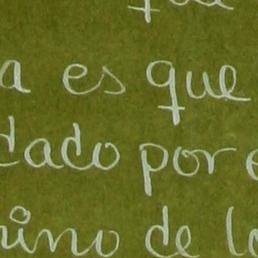 a es que
tado por e
ino de lo